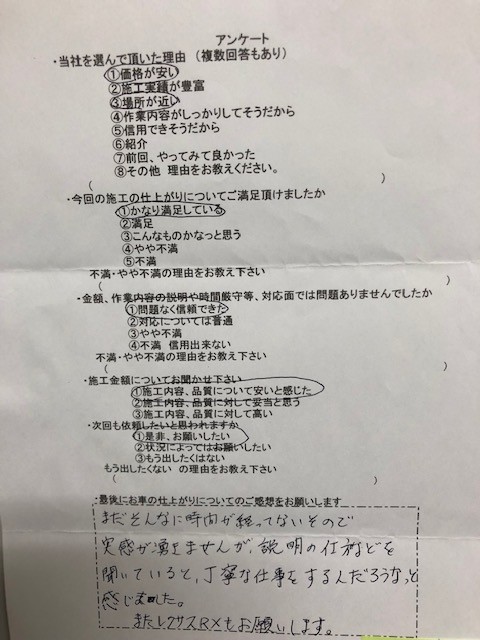 アンケート
・当社を選んで頂いた理由　(複数回答もあり)
①価格が安い
②施工実績が豊富
③場所が近い
④作業内容がしっかりしてそうだから
⑤信用できそうだから
⑥紹介
⑦前回、やってみて良かった
⑧その他　理由をお教えください。
(　　　　　　　　)
・今回の施工の仕上がりについてご満足頂けましたか
①かなり満足している
②満足
③こんなものかなっと思う
④やや不満
⑤不満
不満・やや不満の理由をお教え下さい
(　　　　　　　　)
・金額、作業内容の説明や時間厳守等、対応面では問題ありませんでしたか
①問題なく信頼できた
②対応については普通
③やや不満
④不満　信用出来ない
不満・やや不満の理由をお教え下さい
(　　　　　　　　)
・施工金額についてお聞かせ下さい
①施工内容、品質について安いと感じた
②施工内容、品質に対して妥当と思う
③施工内容、品質に対して高い
・次回も依頼したいと思われますか
①是非、お願いしたい
②状況によってはお願いしたい
③もう出したくはない
もう出したくない　の理由をお教え下さい
(　　　　　　　　)
・最後にお車の仕上がりについてのご感想をお願いします
まだそんなに時間が経ってないもので
実感が湧きませんが、説明の仕方などを
聞いていると、丁寧な仕事をするんだろうなっと
感じました。
またレクサスRXもお願いします。